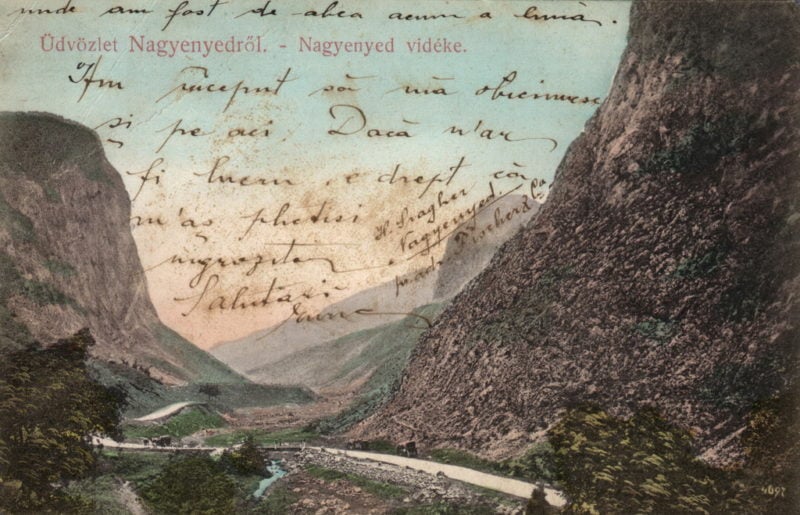 unde am fost de abea acum a luni.
Üdvözlet Nagyenyedről. - Nagyenyed vidéke.
Am început să mă obicinuesc
și pe aci. Dacă n'ar
fi lucru, e drept că
m'aș
îngrozitor
Salutări
Nagyenyed
4692